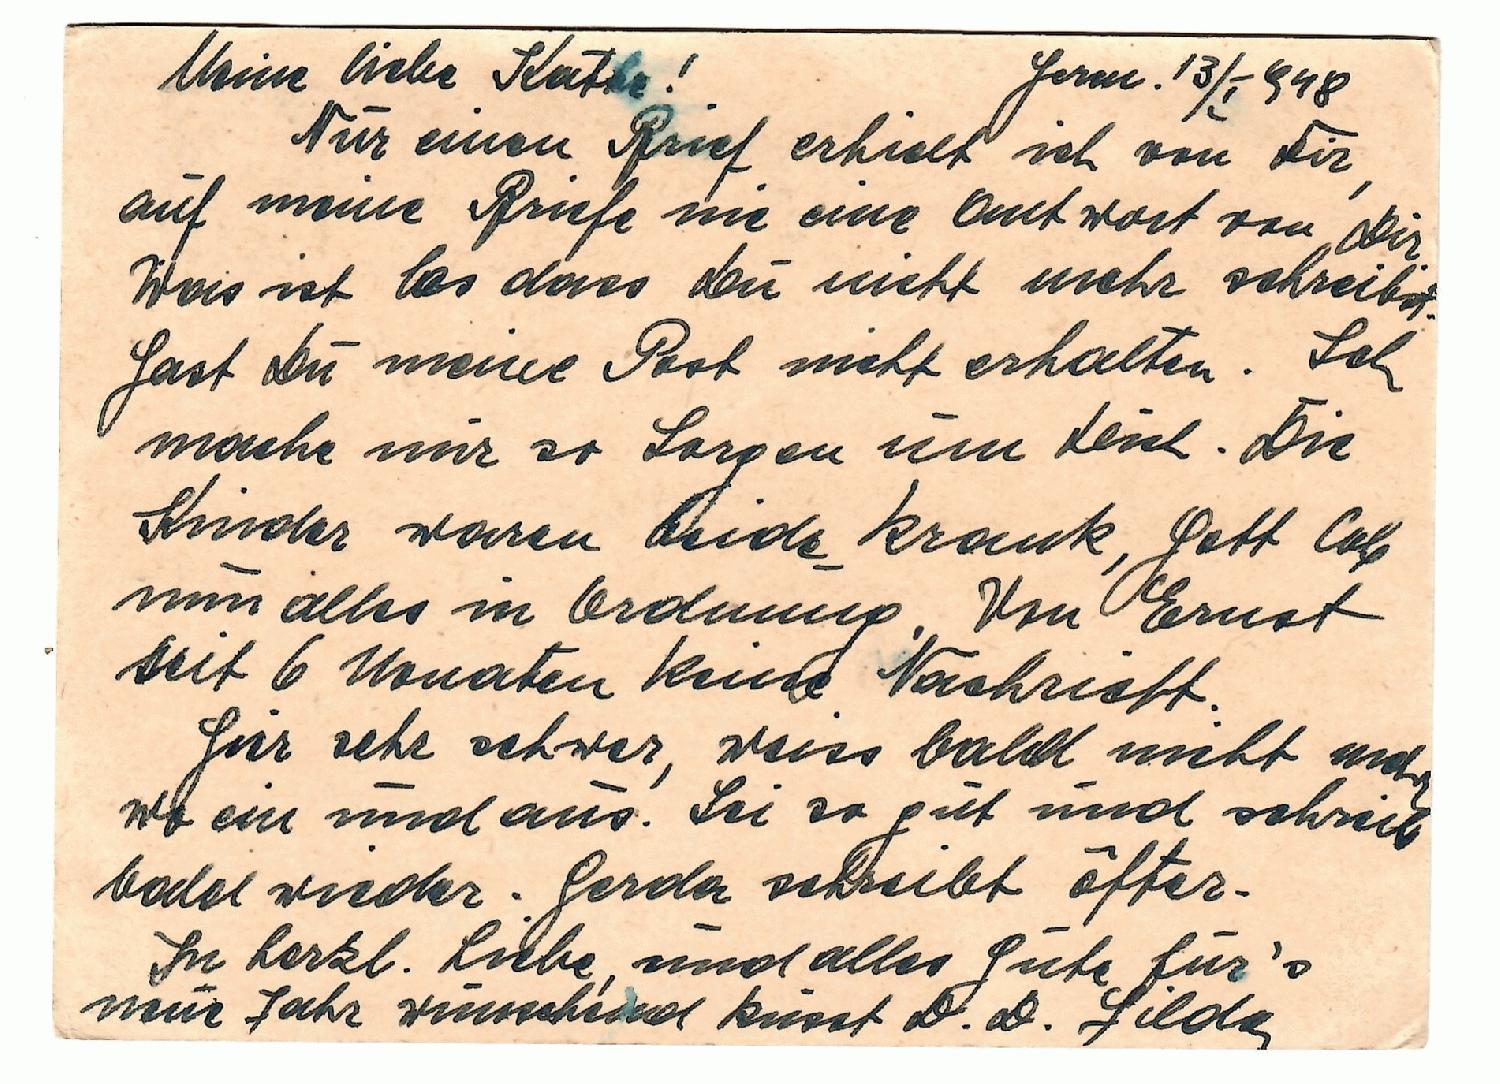 Meine liebe Käthe! Herm. 13/I. 948
Nur einen Brief erhielt ich von Dir,
auf meine Briefe nie eine Antwort von Dir.
Was ist los dass Du nicht mehr schreibst.
Hast Du meine Post nicht erhalten. Ich
mache mir so Sorgen um Dich. Die
Kinder waren beide krank, Gott lob
nun alles in Ordnung. Von Ernst
seit 6 Monaten keine Nachricht.
Hier sehr schwer, weiss bald nicht mehr
wo ein und aus. Sei so gut und schreib
bald wieder. Gerda schreibt öfter.
In herzl. Liebe, und alles Gute für's
neue Jahr wünschend küsst D. D. Hilda